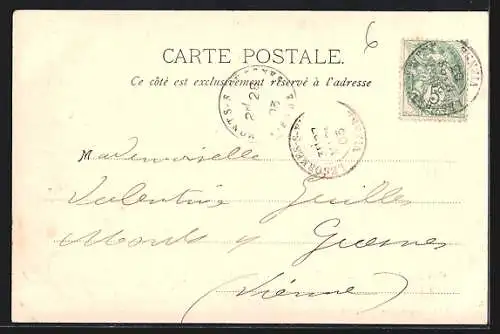 6
CARTE POSTALE.
Ce côté est exclusivement réservé à l'adresse
5
Mademoiselle
Valentine Guilles
Monts s/ Guesnes
(Vienne)